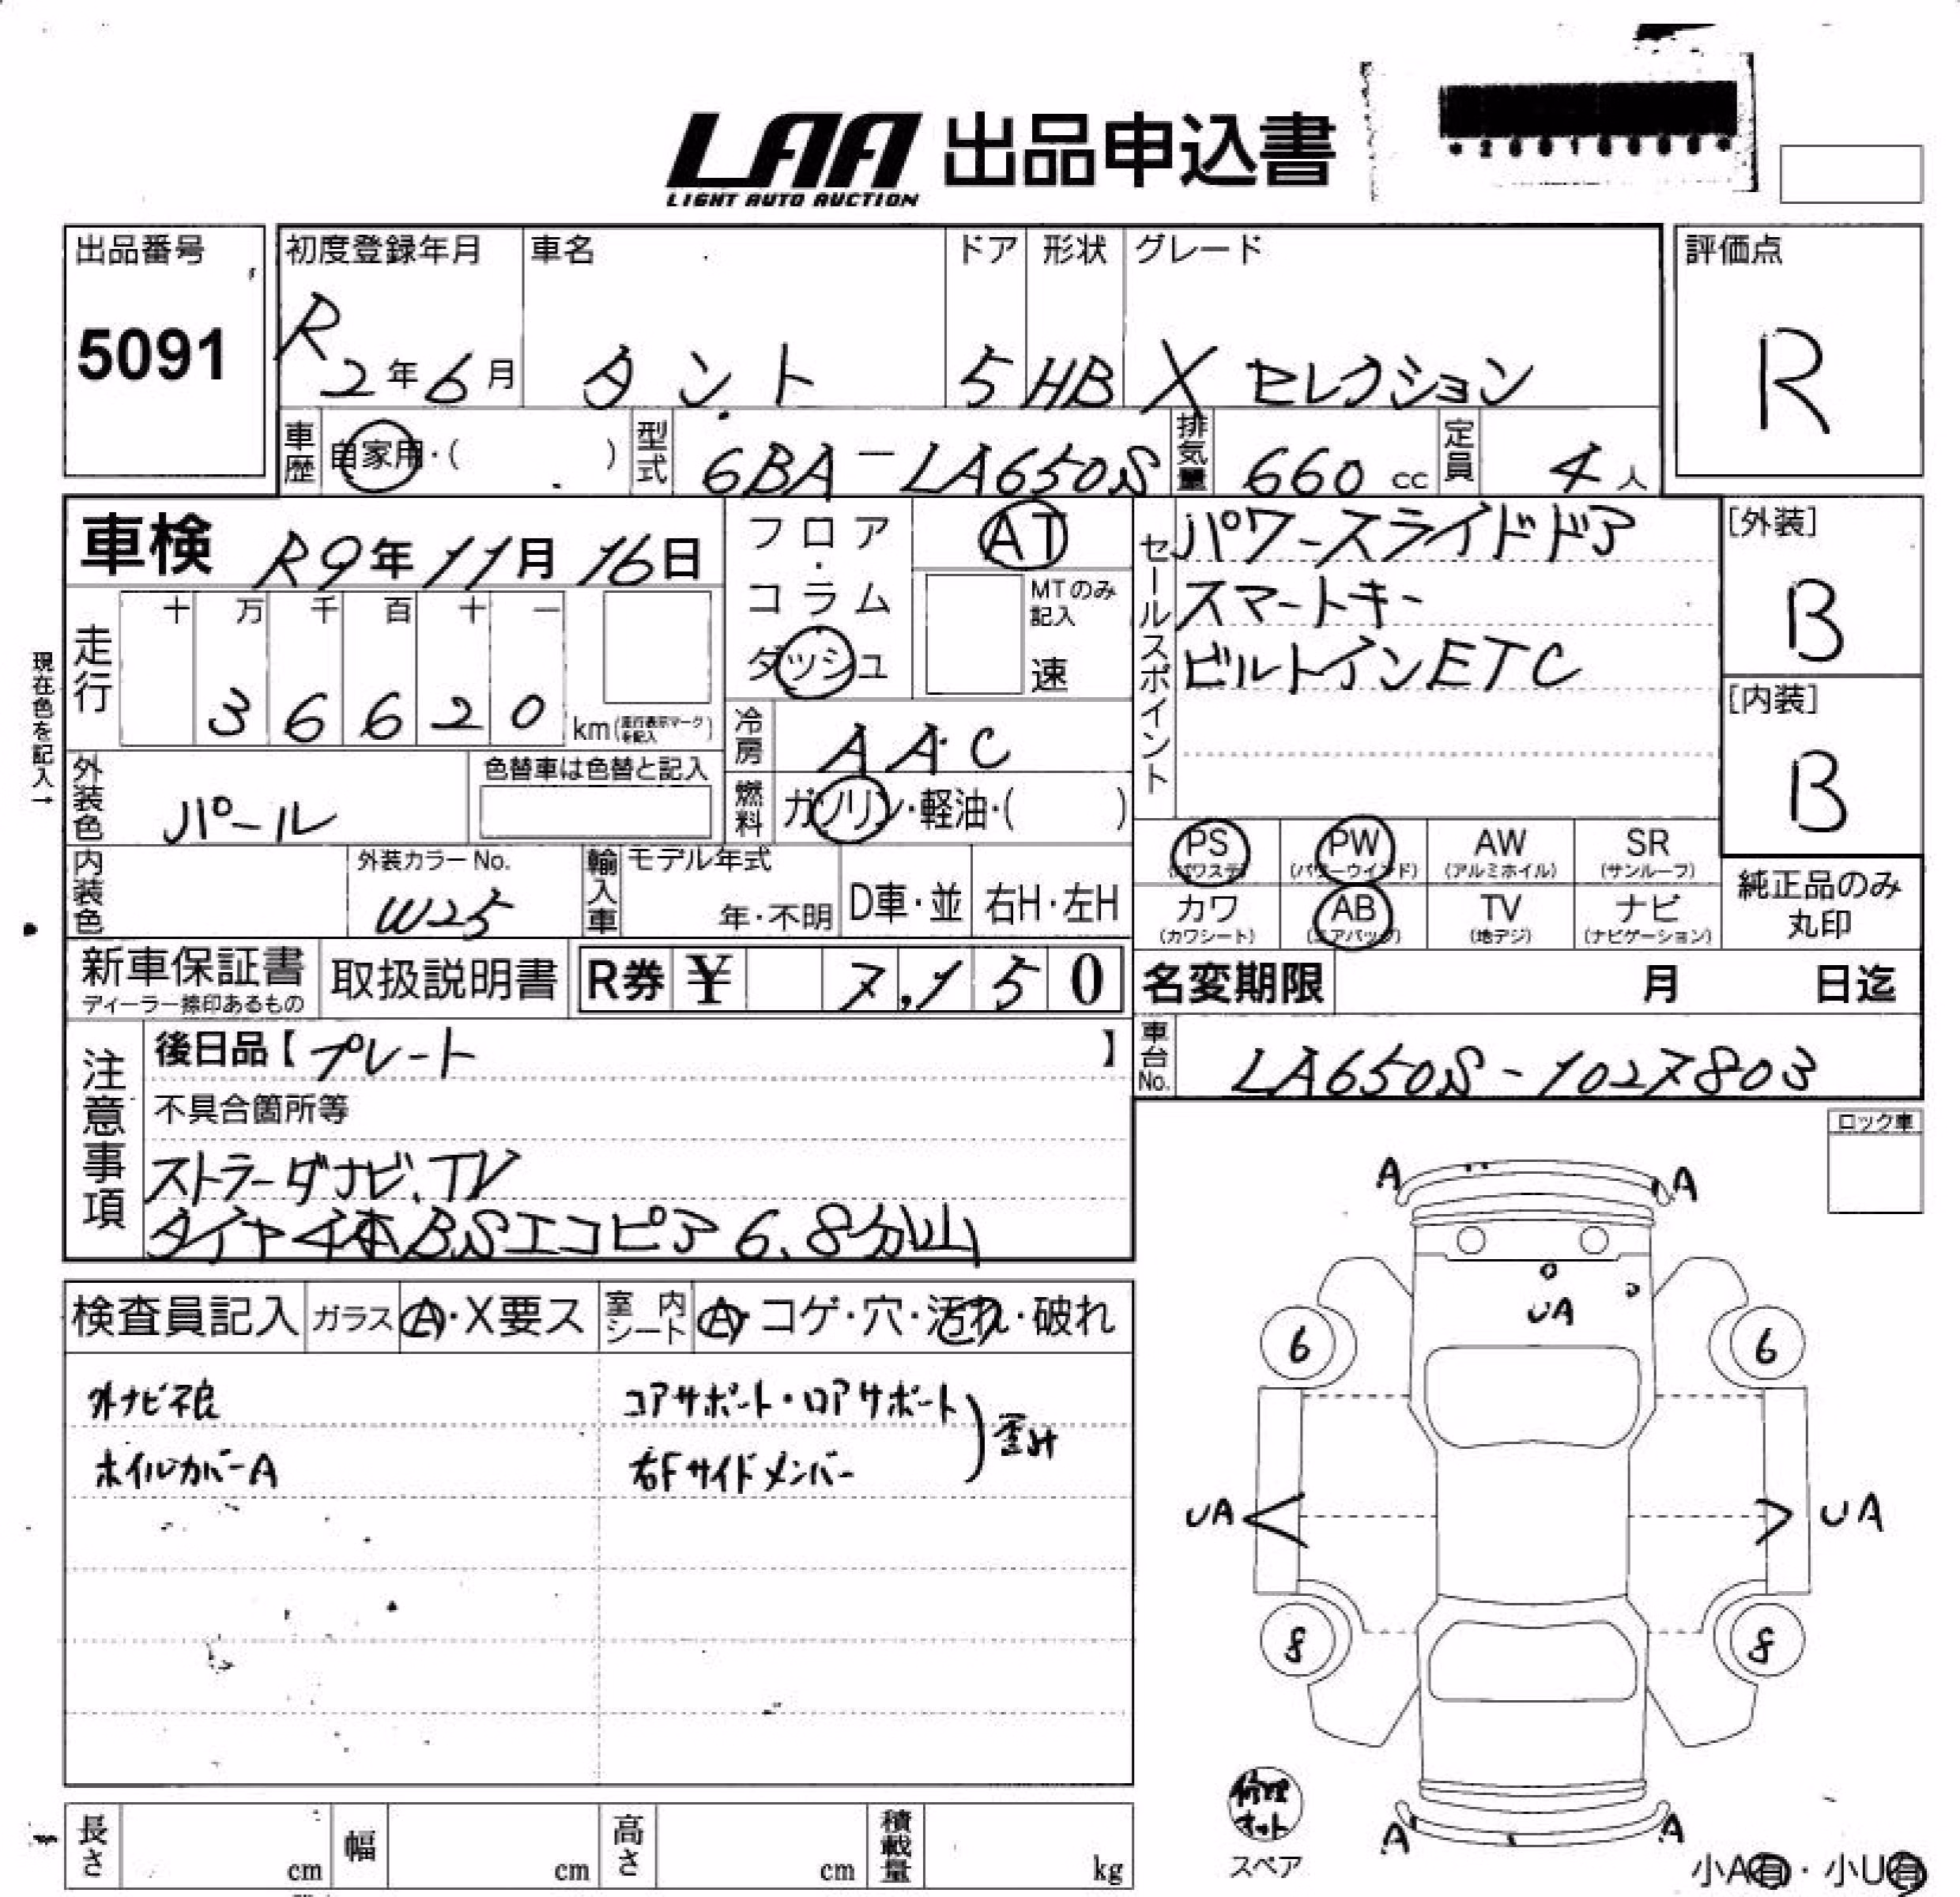 LAA 出品申込書
LIGHT AUTO AUCTION
出品番号
5091
初度登録年月
R2年6月
車名
タント
ドア
5
形状
HB
グレード
X セレクション
評価点
R
車歴
自家用・( )
型式
6BA-LA650S
排気量
660 cc
定員
4人
車検 R9年11月16日
走行
十 万 千 百 十 一
3 6 6 2 0 km(走行表示マークを記入)
現在色を記入→
フロア・コラム
ダッシュ
AT
MTのみ記入
速
冷房
AAC
燃料
ガソリン・軽油・( )
セールスポイント
パワースライドドア
スマートキー
ビルトインETC
[外装]
B
[内装]
B
外装色
パール
色替車は色替と記入
内装色
外装カラーNo.
W25
輸入車
モデル年式
年・不明
D車・並
右H・左H
PS
(パワステ)
PW
(パワーウインド)
AW
(アルミホイル)
SR
(サンルーフ)
カワ
(カワシート)
AB
(エアバッグ)
TV
(地デジ)
ナビ
(ナビゲーション)
純正品のみ
丸印
新車保証書
ディーラー捺印あるもの
取扱説明書
R券 ¥ 7,150
名変期限 月 日迄
注意事項
後日品【プレート】
不具合箇所等
ストラーダナビ、TV
タイヤ4本BSエコピア6.8分山
車台No.
LA650S-1027803
ロック車
検査員記入
ガラス
A・X要ス
室内シート
A・コゲ・穴・汚れ・破れ
外ナビ不良
ホイルカバーA
コアサポート・ロアサポート
右Fサイドメンバー
歪み
A
A
UA
6
6
UA
UA
8
8
A
A
修理キット
スペア
小A有・小U有
長さ cm
幅 cm
高さ cm
積載量 kg